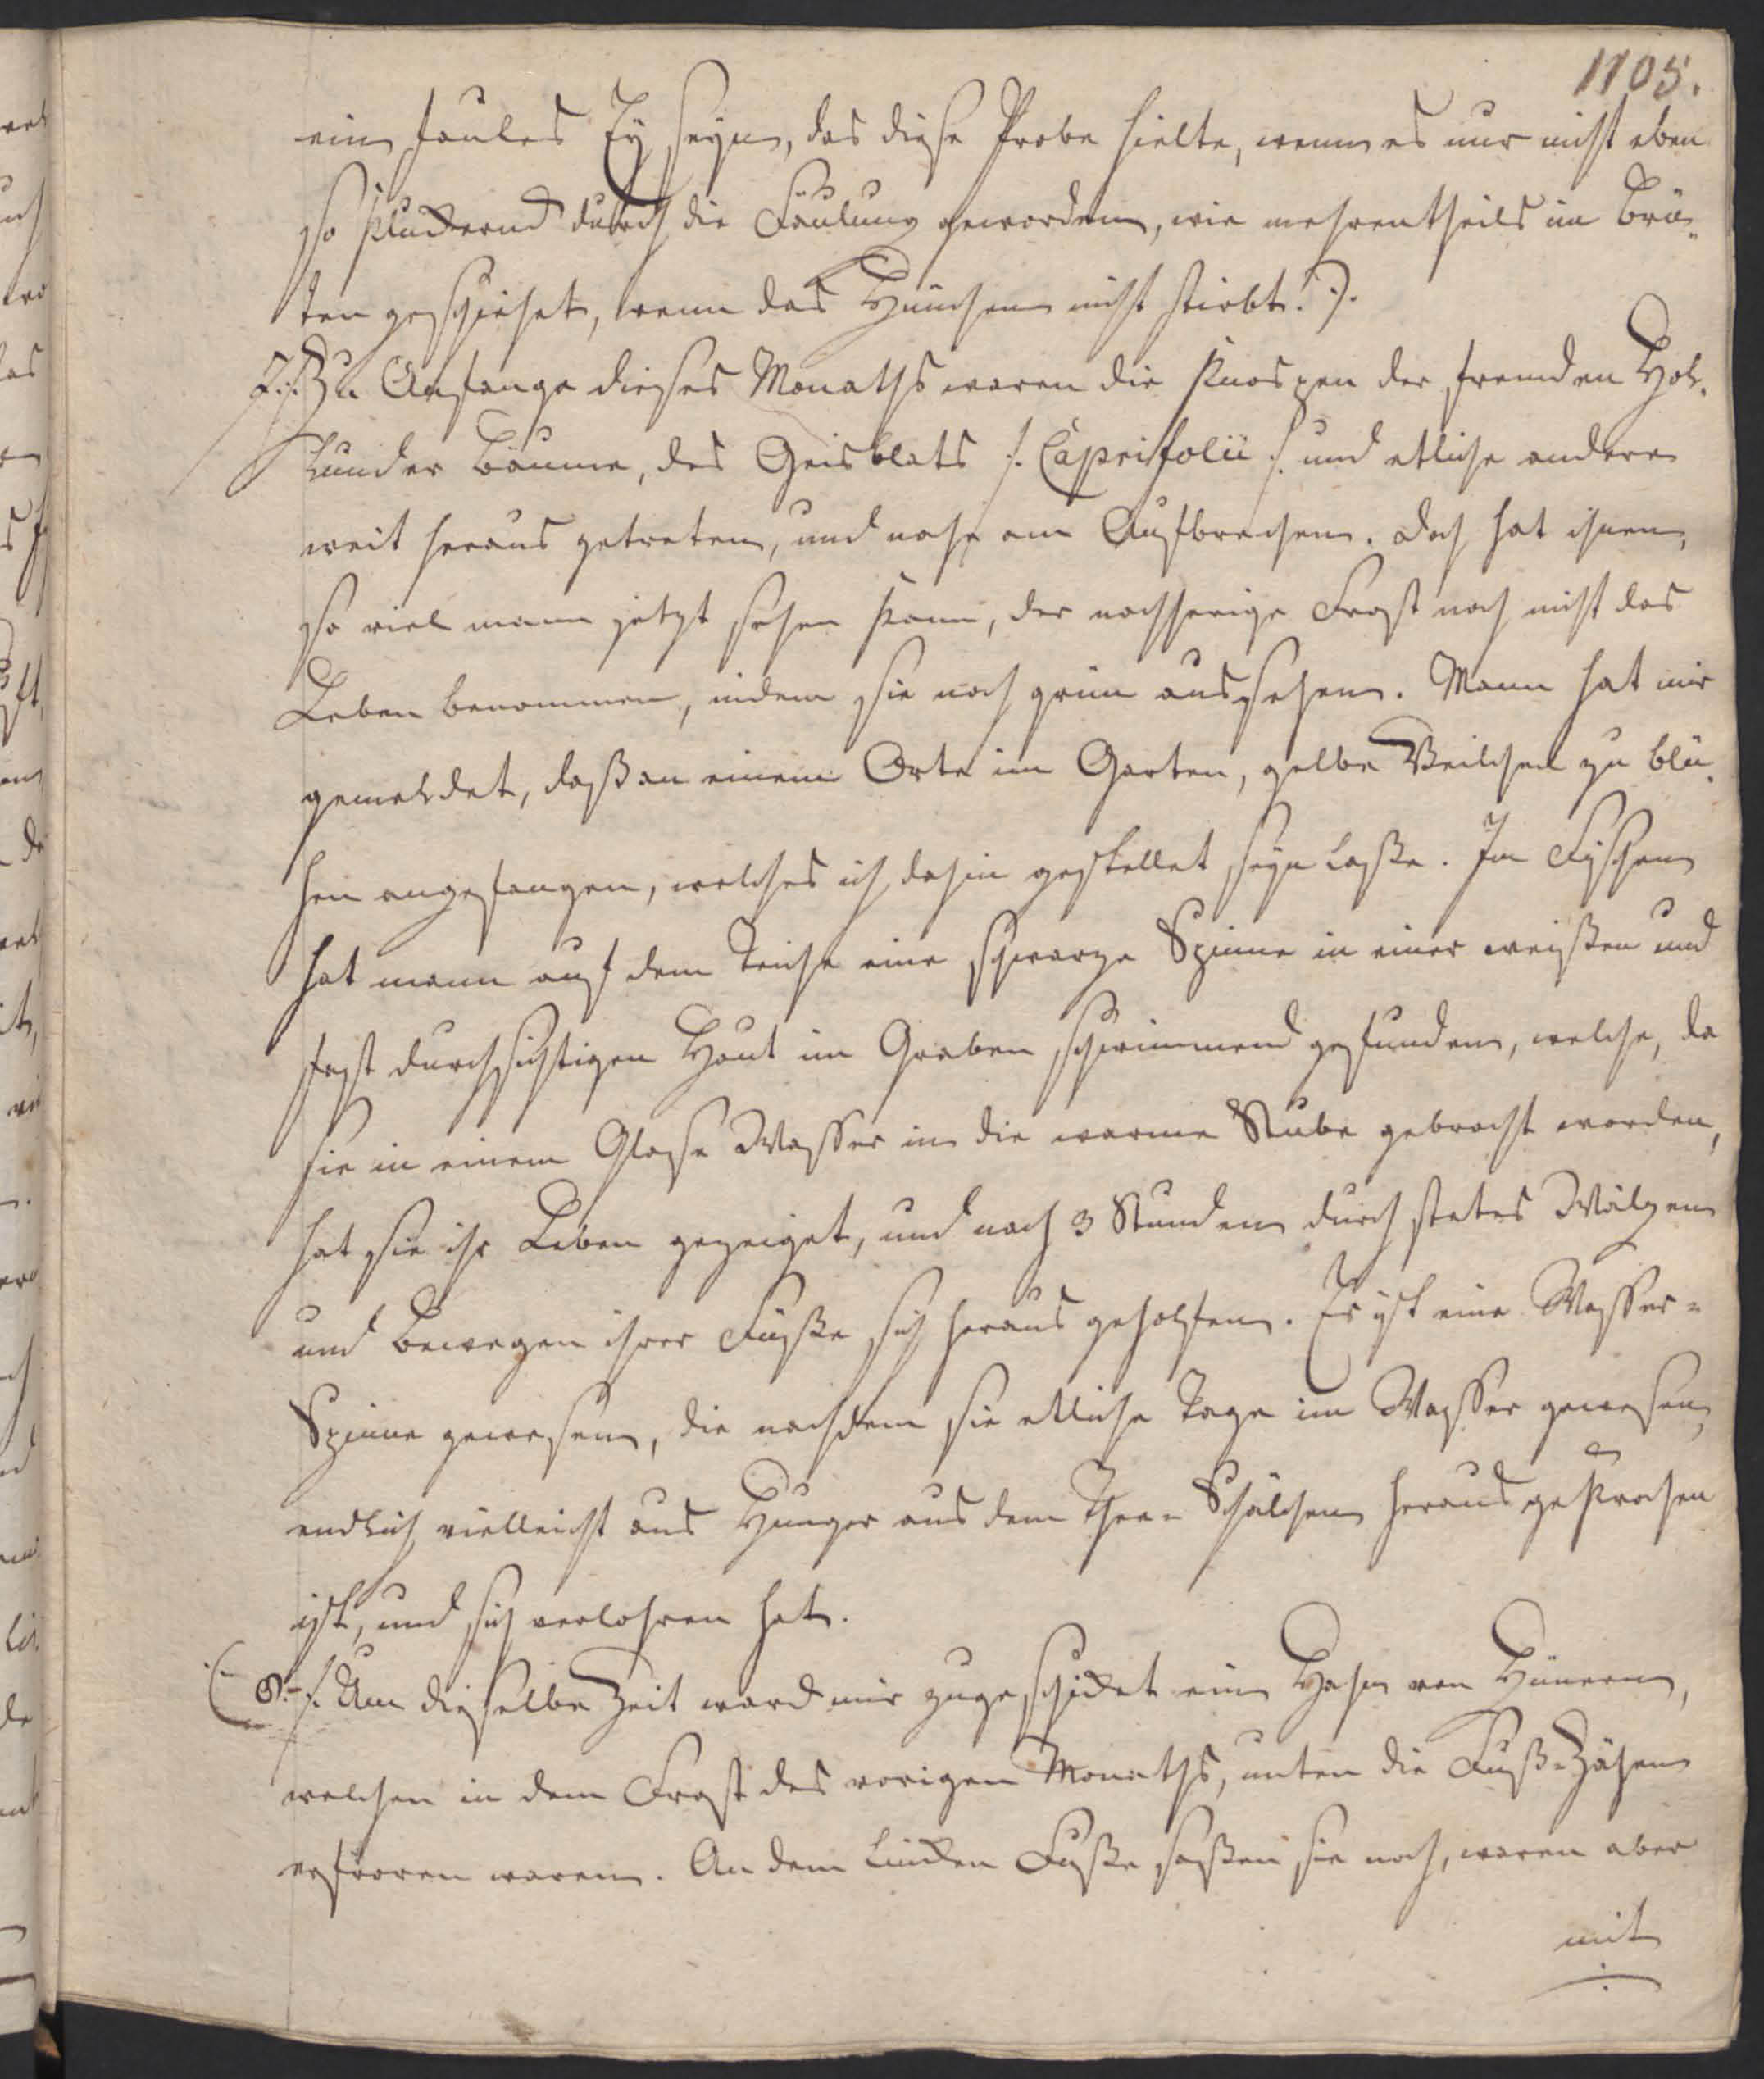 1105.
ein faules Ey seyn, das diese Probe hielte, wenn es nur nicht eben
so kluckernd durch die Fäulung geworden, wie mehrentheils im Brü-
ten geschiehet, wenn das Hünchen nicht stirbt. ).
7. /. Zu Anfange dieses Monaths waren die Knospen der fremden Hol-
lunder Bäume, des Geisblats /. Caprifolii /. und etliche andere
weit heraus getreten, und nahe am Aufbrechen. Doch hat ihnen,
so viel mann jetzt sehen kann, der nachherige Frost noch nicht das
Leben benommen, indem sie noch grün aussehen. Mann hat mir
gemeldet, daß an einem Orte im Garten, gelbe Veilchen zu blü-
hen angefangen, welches ich dahin gestellet seyn laße. Im Fischen
hat mann auf dem Teiche eine schwarze Spinne in einer weißen und
fast durchsichtigen Haut im Graben schwimmend gefunden, welche, da
sie in einem Glase Wasser in die warme Stube gebracht worden,
hat sie ihr Leben gezeiget, und nach 3 Stunden durch stetes Wälzen
und Bewegen ihrer Füße sich heraus geholfen. Es ist eine Wasser-
Spinne gewesen, die nachdem sie etliche Tage im Wasser gewesen,
endlich vielleicht aus Hunger aus dem Thee-Schälchen heraus gekrochen
ist, und sich verlohren hat.
( 8. /. Um dieselbe Zeit ward mir zugeschickt ein Hahn von Hünern,
welchen in dem Frost des vorigen Monaths, unten die Fuß-Zähen
erfroren waren. An dem linken Fuße saßen sie noch, waren aber
mit